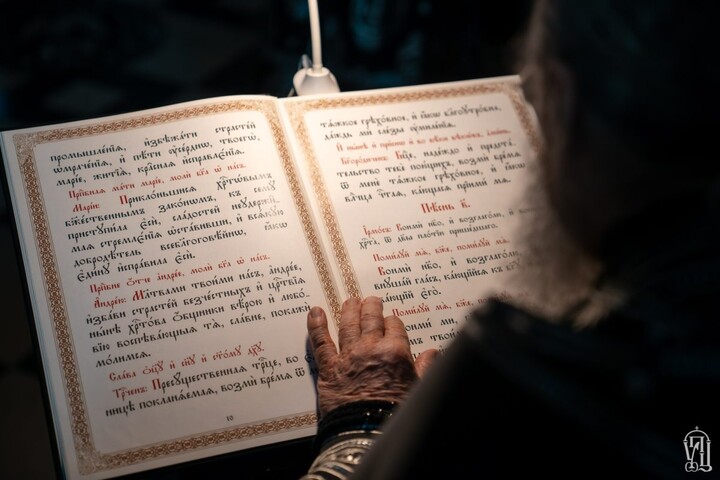 промышле́нїѧ, и҆збѣжа́ти страсте́й
ѡ҆мраче́нїѧ, и҆ пѣ́ти ᲂу҆се́рднѡ, твоегѡ̀,
марі́е, житїѧ̀, кра̑снаѧ и҆справлє́нїѧ.
Прпⷣбнаѧ ма́ти марі́е, молѝ бг҃а ѡ҆ на́съ.
Марі́и: Прикло́ньшисѧ хрⷭ҇тѡ́вымъ
бжⷭ҇твєннымъ зако́нѡмъ, къ семꙋ̀
пристꙋпи́ла є҆сѝ, сла́достей неꙋдержи̑-
маѧ стремлє́нїѧ ѡ҆ста́вивши, и҆ всѧ́кꙋю
добродѣ́тель всебл҃гоговѣ́йнѡ, ꙗ҆́кѡ
є҆ди́нꙋ и҆спра́вила є҆сѝ.
Прпⷣбне ѻ҆́ч҃е андре́е, молѝ бг҃а ѡ҆ на́съ.
А҆ндре́ю: Мл҃твами твои́ми на́съ, андре́е,
и҆зба́ви страсте́й безче́стныхъ и҆ црⷭ҇твїѧ
ны́нѣ хрⷭ҇то́ва ѻ҆́бщники вѣ́рою и҆ любо́-
вїю воспѣва́ющыѧ тѧ̀, сла́вне, покажѝ
мо́лимсѧ.
Сла́ва ѻ҆ц҃ꙋ̀ и҆ сн҃ꙋ и҆ ст҃о́мꙋ дх҃ꙋ.
Трⷪ҇ченъ: Пресꙋ́щественнаѧ трⷪ҇це, во є҆
ницѣ покланѧ́емаѧ, возмѝ бре́мѧ ѿ
50
тѧ́жкое грѣхо́вное, и҆ ꙗ҆́кѡ бл҃гоꙋтро́бна,
да́ждь мѝ сле́зы ᲂу҆миле́нїѧ.
И҆ ны́нѣ и҆ при́снѡ и҆ во вѣ́ки вѣкѡ́въ, а҆ми́нь.
Бг҃оро́диченъ: Бцⷣе, наде́ждо и҆ предста́-
тельство тебѐ пою́щихъ, возмѝ бре́мѧ
ѿ менѐ тѧ́жкое грѣхо́вное, и҆ ꙗ҆́кѡ
влⷣчца чтⷭ҇аѧ, ка́ющасѧ прїимѝ мѧ̀.
Пѣ́снь в҃.
І҆рмо́съ: Вонмѝ нб҃о, и҆ возглаго́лю, и҆
хрⷭ҇та̀, ѿ дв҃ы пло́тїю прише́дшаго.
Поми́лꙋй мѧ̀, бж҃е, поми́лꙋй мѧ̀.
Вонмѝ нб҃о, и҆ возглаго́лю,
гла́съ, ка́ющїйсѧ къ
є҆го̀.
Поми́лꙋй мѧ̀, бж҃е,
Вонмѝ ми,